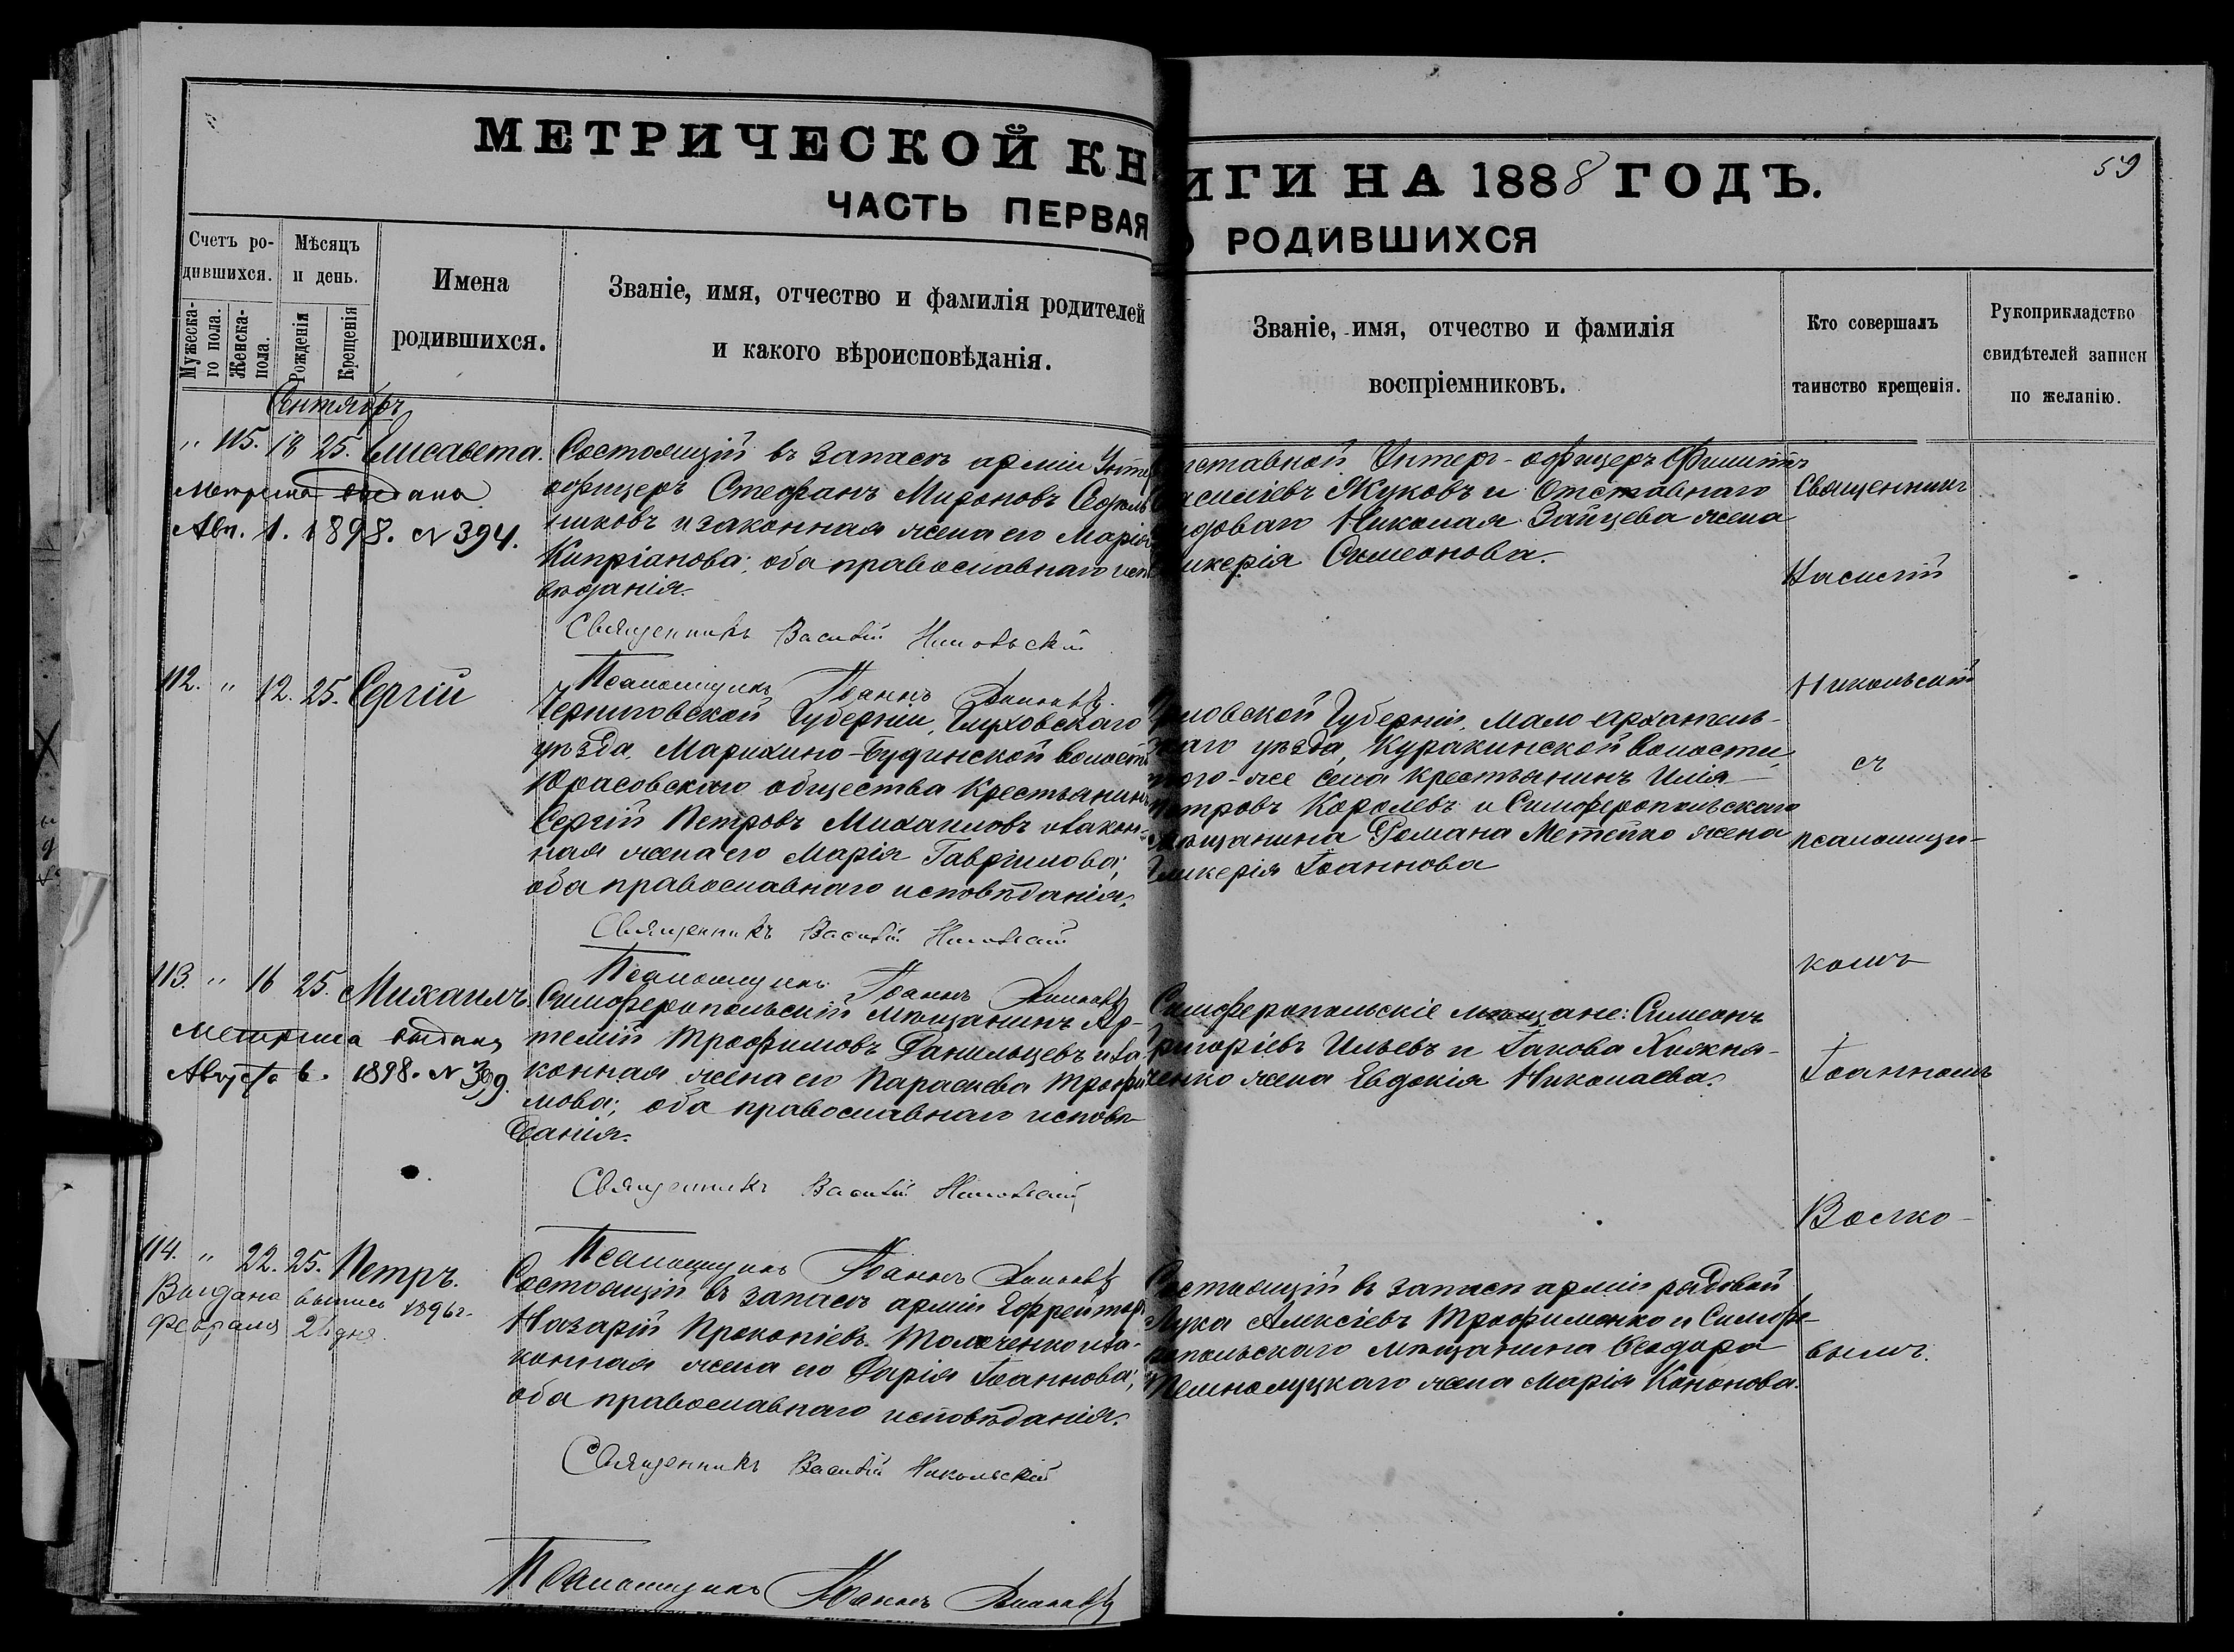 59
МЕТРИЧЕСКОЙ КНИГИ НА 1888 ГОДЪ.
ЧАСТЬ ПЕРВАЯ О РОДИВШИХСЯ
Счетъ родившихся.
Мужескаго пола.
Женска- пола.
Мѣсяцъ и день.
Рожденія
Крещенія
Имена
родившихся.
Званіе, имя, отчество и фамилія родителей
и какого вѣроисповѣданія.
Званіе, имя, отчество и фамилія
воспріемниковъ.
Кто совершалъ
таинство крещенія.
Рукоприкладство
свидѣтелей записи
по желанію.
Сентябрь
" 115. 18 25. Елисавета.
Метрика выдана
Авг. 1. 1898. N 394.
Состоящій въ запасѣ арміи Унте
офицеръ Стефанъ Мироновъ
никовъ и законная жена его Марія
Кипріанова; оба православнаго исп
вѣданія.
Священникъ Василій Никольскій
Псаломщикъ Іоаннъ
тставной Унтеръ-офицеръ Филиппъ
асиліевъ Жуковъ и Отставнаго
ядоваго Николая Зайцева жена
ликерія Симеонова.
112. " 12. 25. Сергій
Черниговской Губерніи, Глуховскаго
уѣзда, Марихино-Будинской волости
Юрасовскаго общества Крестьянинъ
Сергій Петровъ Михаиловъ и закон-
ная жена его Марія Гавріилова;
оба православнаго исповѣданія.
Священникъ Василій Никольскій
Псаломщикъ Іоаннъ
рловской Губерніи, Мало-Архангель-
скаго уѣзда, Куракинской волости,
того-же села крестьянинъ Илія
Петровъ Королевъ и Симферопольскаго
мѣщанина Романа Метейко жена
Гликерія Іоаннова
113. " 16 25. Михаилъ.
Метрика выдана
Августа 6. 1898. N 399.
Симферопольскій мѣщанинъ Ар-
темій Трофимовъ Данильцевъ и за-
конная жена его Параскева Трофи
мова; оба православнаго исповѣ
данія.
Священникъ Василій Никольскій
Псаломщикъ Іоаннъ
Симферопольскіе мѣщане: Симеонъ
Григоріевъ Ильевъ и Іакова Хижня-
ченко жена Евдокія Николаева.
114. " 22. 25. Петръ.
Выдана выпись 1896г.
Февраля 21 дня.
Состоящій въ запасѣ арміи Ефрейторъ
Назарій Прокопіевъ и за-
конная жена его Дарія Іоаннова;
оба православнаго исповѣданія.
Священникъ Василій Никольскій
Псаломщикъ Іоаннъ
Состоящій въ запасѣ арміи рядовой
Лука Алексіевъ Трофименко и Симфе-
ропольскаго мѣщанина Ѳеодора
жена Марія Кононова.
Священникъ
Василій
Никольскій
съ
псаломщи-
комъ
Іоанномъ
Волко-
вымъ.